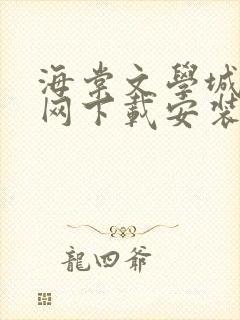 海棠文學城
网下載安裝
龍四爺